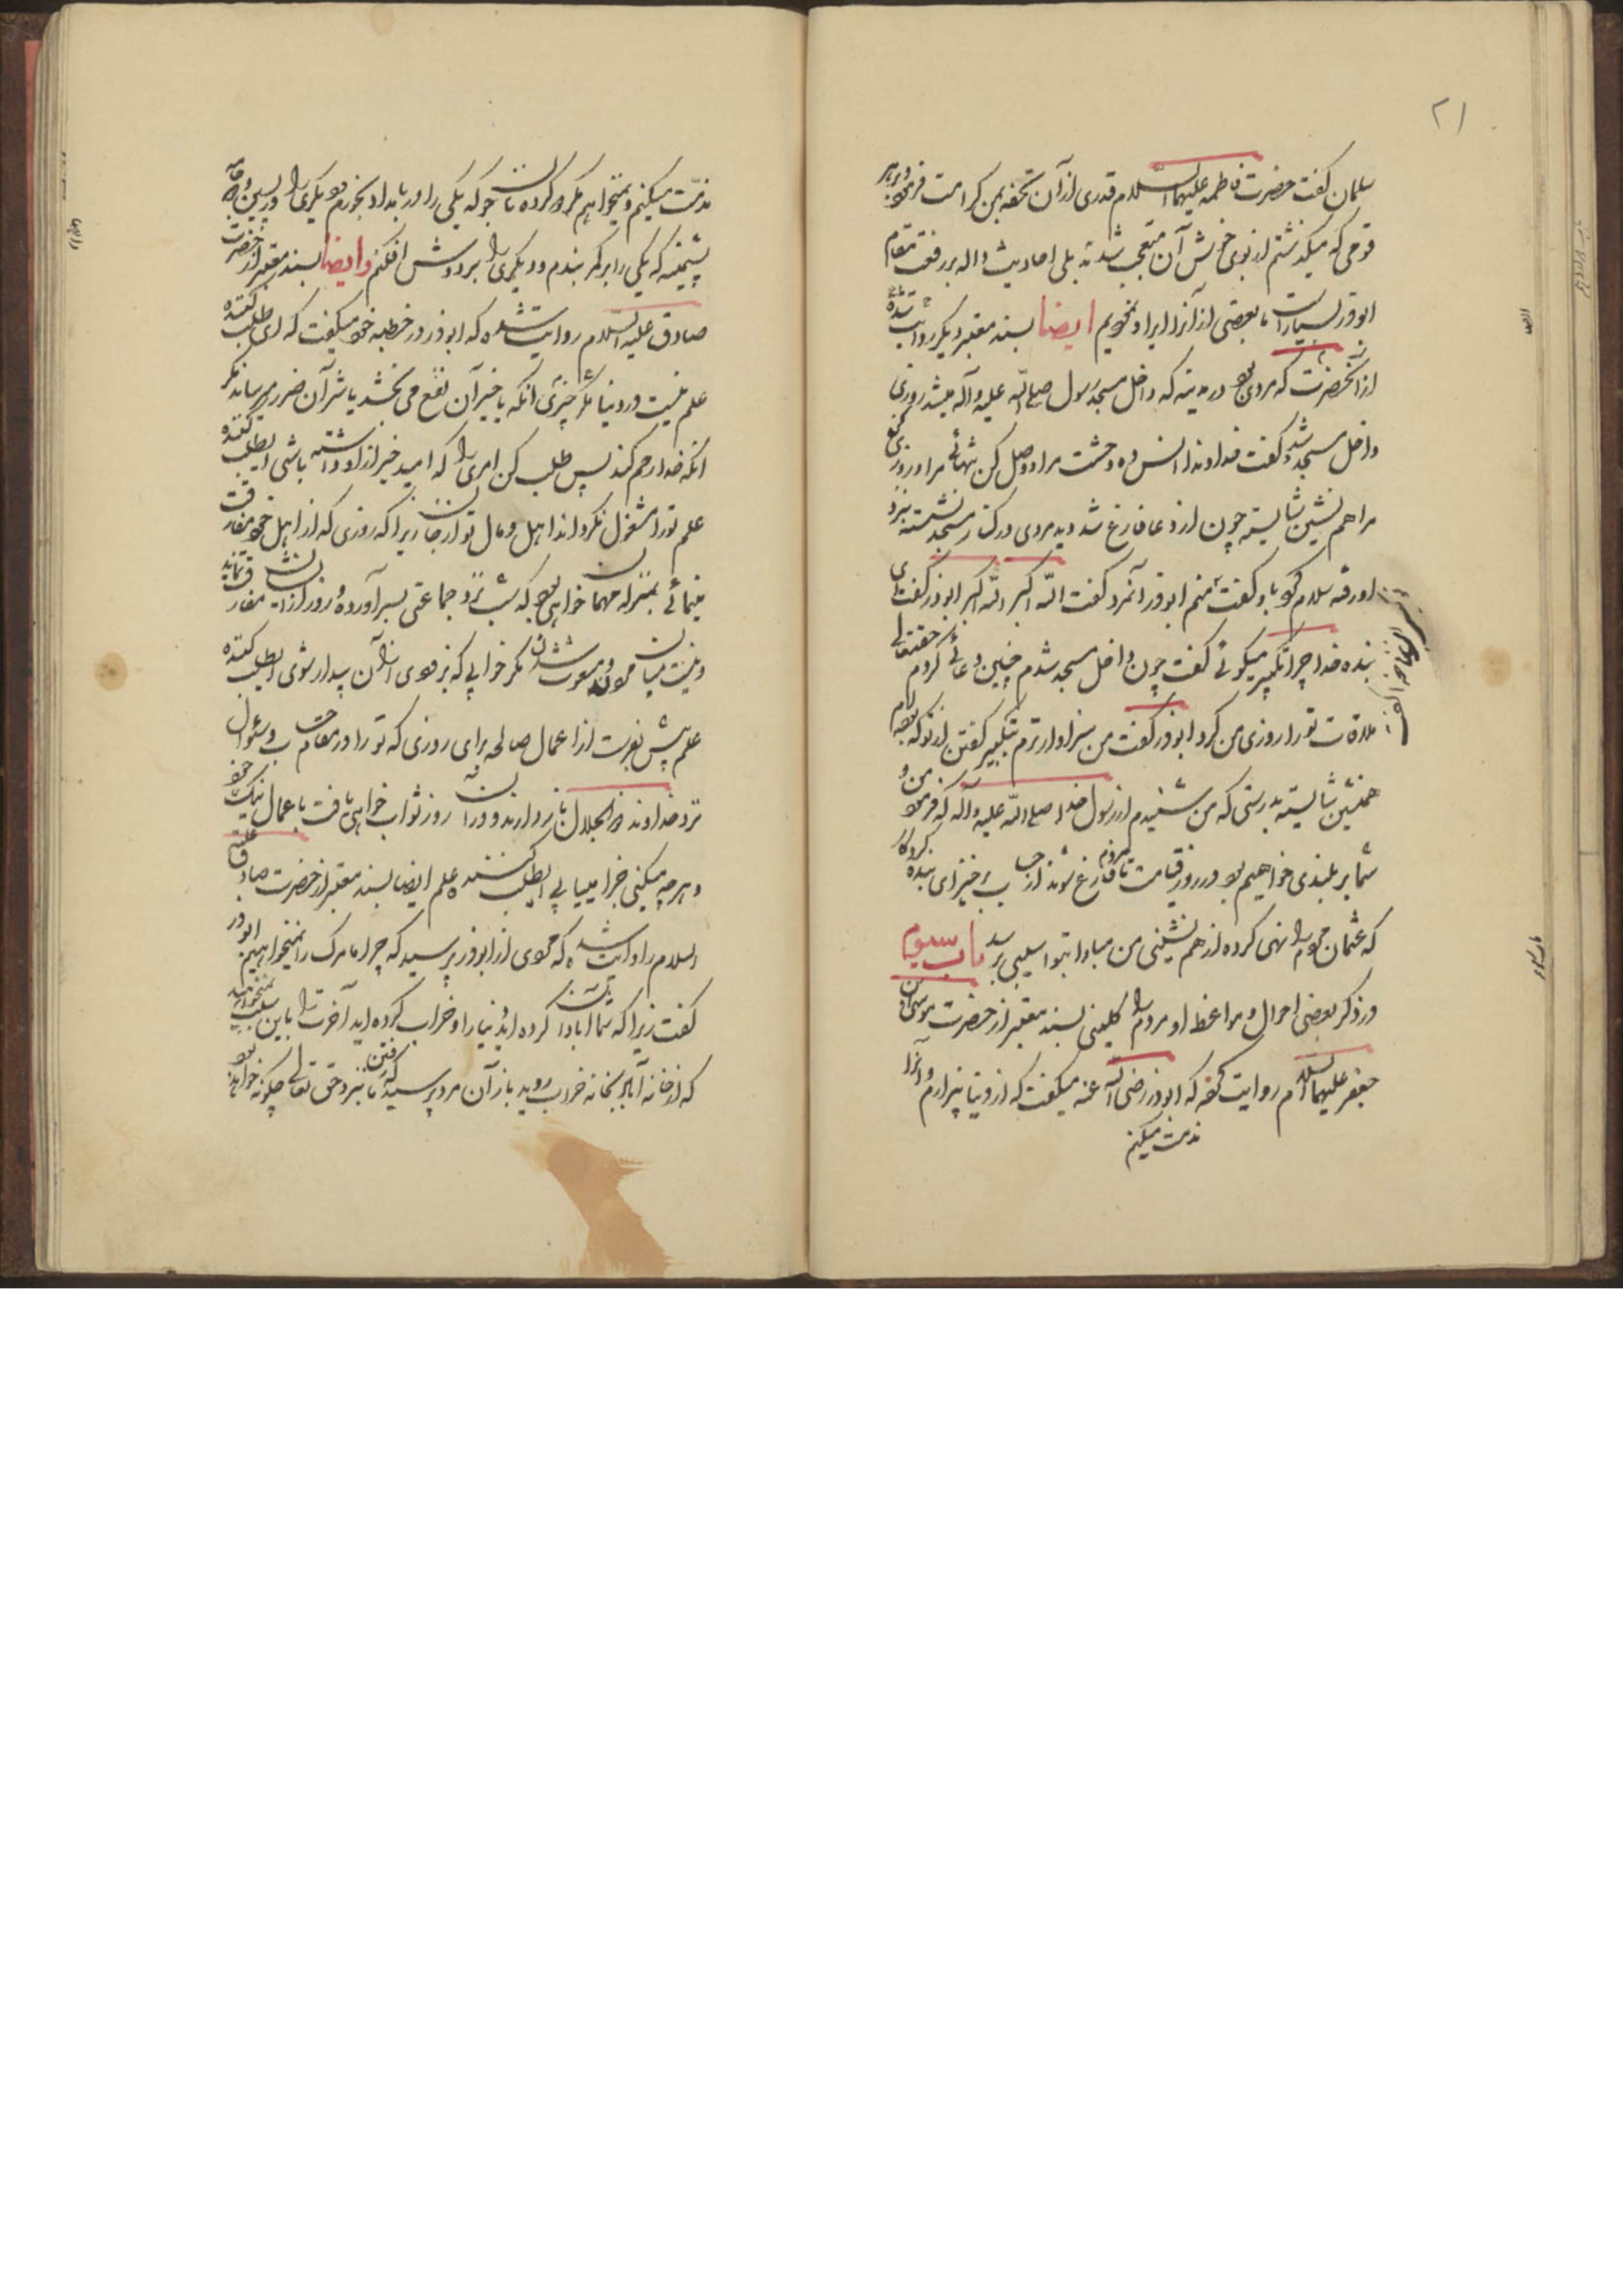 ۲۱
سلمان گفت حضرت فاطمه علیها السلام قدری از آن تحفه بمن کرامت فرمود و بر هر
قومی که میگذشتم از بوی خوش آن متعجب شدند بلی احادیث داله بر رفعت مقام
ابوذر بسیار است ما بعضی از آنرا ایراد نمودیم ایضا بسند معتبر دیگر روایت شده
از آنحضرت که مردی بود در مدینه که داخل مسجد رسول صلی الله علیه وآله میشد روزی
داخل مسجد شد و گفت خداوندا انس ده وحشت مرا و وصل کن تنهائی مرا و روزی کن
مرا همنشین شایسته چون از دعا فارغ شد دید مردی در کنار مسجد نشسته نزد
او رفته سلام کرد باو گفت منم ابوذر آنمرد گفت الله اکبر الله اکبر ابوذر گفت ای
بنده خدا چرا تکبیر میگوئی گفت چون داخل مسجد شدم چنین دعائی کردم حقتعالی
ملاقات تورا روزی من کرد ابوذر گفت من سزاوارترم بتکبیر گفتن از تو که بوده ام
همنشین شایسته بدرستی که من شنیدم از رسول خدا صلی الله علیه وآله که فرمود من و
شما بر بلندی خواهیم بود در روز قیامت تا مردم فارغ شوند از حساب برخیز ای بنده کردگار
که عثمان مردم را نهی کرده از همنشینی من مبادا بتو آسیبی برسد باب سیوم
در ذکر بعضی احوال و مواعظ او مردم را کلینی بسند معتبر از حضرت موسی بن
جعفر علیهما السلام روایت کرده که ابوذر رضی الله عنه میگفت که از دنیا بیزارم و آنرا
مذمت میکنم
مذمّت میکنم و نمیخواهم مگر دو کرده نان جو که یکی را در بامداد بخورم و دیگری را در پسین و دو جامه
پشمینه که یکی را بر کمر بندم و دیگری را بر دوش افکنم وایضا بسند معتبر از حضرت
صادق علیه السلام روایت شده که ابوذر در خطبه خود میگفت که ای طلب کننده
علم نیست در دنیا مگر چیزی آنکه یا خیر آن نفع می بخشد یا شر آن ضرر میرساند مگر
آنکه خدا رحم کند پس طلب کن امری را که امید خیر از او داشته باشی ای طلب کننده
علم تورا مشغول نگرداند اهل و مال تو از جان زیرا که روزی که از اهل خود مفارقت
مینمائی بمنزله مهمان خواهی بود که شب نزد جماعتی بسر آورده و روز از ایشان مفارقت نماید
و نیست میان مردن و مبعوث شدن مگر خوابی که بزودی از آن بیدار شوی ای طلب کننده
علم پیش بفرست از اعمال صالحه برای روزی که تو را در مقام حساب و سئوال
نزد خداوند ذوالجلال باز دارند و در آن روز ثواب خواهی یافت باعمال نیک خود
و هر چه میکنی جزا مییابی ای طلب کننده علم ایضا بسند معتبر از حضرت صادق علیه
السلام روایت شده که مردی از ابوذر پرسید که چرا ما مرگ را نمیخواهیم ابوذر
گفت زیرا که شما آبادان کرده اید دنیا را و خراب کرده اید آخرت را باین سبب نمیخواهید
که از خانه آباد بخانه خراب روید باز آن مرد پرسید که رفتن ما بنزد حق تعالی چگونه خواهد بود